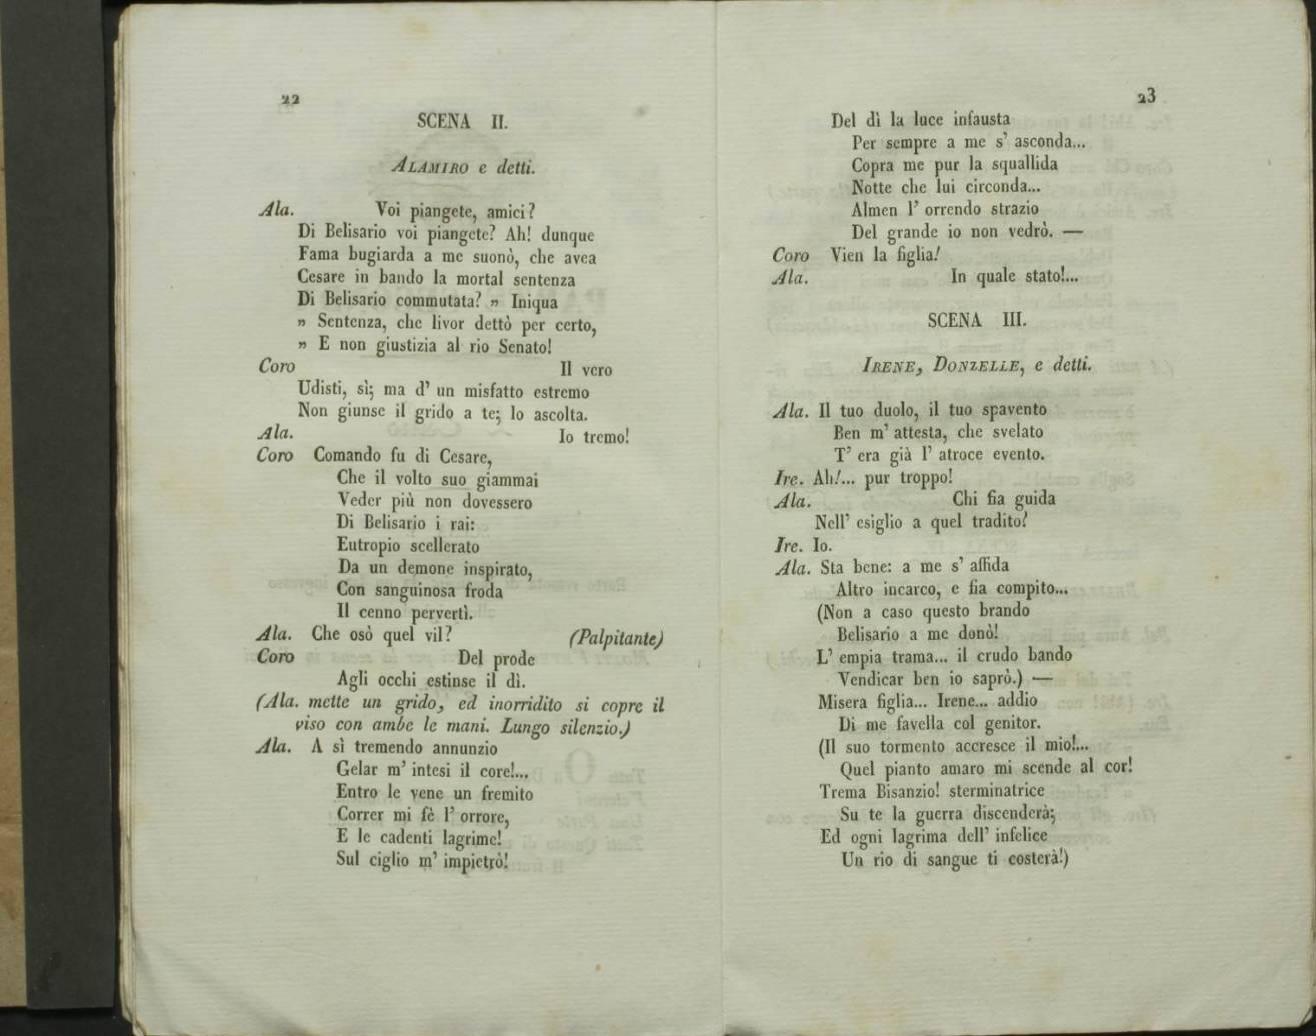 22
SCENA II.
ALAMIRO e detti.
Ala. Voi piangete, amici?
Di Belisario voi piangete? Ah! dunque
Fama bugiarda a me suonò, che avea
Cesare in bando la mortal sentenza
Di Belisario commutata? „ Iniqua
„ Sentenza, che livor dettò per certo,
„ E non giustizia al rio Senato!
Coro Il vero
Udisti, sì; ma d' un misfatto estremo
Non giunse il grido a te; lo ascolta.
Ala. Io tremo!
Coro Comando fu di Cesare,
Che il volto suo giammai
Veder più non dovessero
Di Belisario i rai:
Eutropio scellerato
Da un demone inspirato,
Con sanguinosa froda
Il cenno pervertì.
Ala. Che osò quel vil? (Palpitante)
Coro Del prode
Agli occhi estinse il dì.
(Ala. mette un grido, ed inorridito si copre il
viso con ambe le mani. Lungo silenzio.)
Ala. A sì tremendo annunzio
Gelar m' intesi il core!...
Entro le vene un fremito
Correr mi fè l' orrore,
E le cadenti lagrime!
Sul ciglio m' impietrò!
23
Del dì la luce infausta
Per sempre a me s' asconda...
Copra me pur la squallida
Notte che lui circonda...
Almen l' orrendo strazio
Del grande io non vedrò. —
Coro Vien la figlia!
Ala. In quale stato!...
SCENA III.
IRENE, DONZELLE, e detti.
Ala. Il tuo duolo, il tuo spavento
Ben m' attesta, che svelato
T' era già l' atroce evento.
Ire. Ah!... pur troppo!
Ala. Chi fia guida
Nell' esiglio a quel tradito?
Ire. Io.
Ala. Sta bene: a me s' affida
Altro incarco, e fia compito...
(Non a caso questo brando
Belisario a me donò!
L' empia trama... il crudo bando
Vendicar ben io saprò.) —
Misera figlia... Irene... addio
Di me favella col genitor.
(Il suo tormento accresce il mio!...
Quel pianto amaro mi scende al cor!
Trema Bisanzio! sterminatrice
Su te la guerra discenderà;
Ed ogni lagrima dell' infelice
Un rio di sangue ti costerà!)